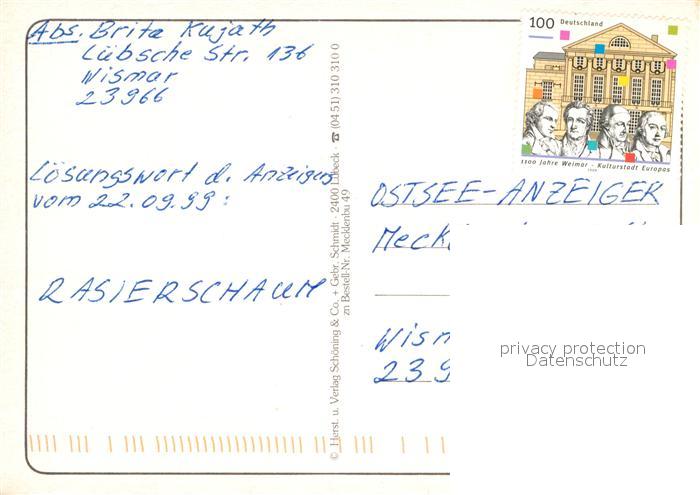 Abs. Brita Kujath
Lübsche Str. 136
Wismar
23966
Lösungswort d. Anzeigers
vom 22.09.99:
RASIERSCHAUM
© Herst. u. Verlag Schöning & Co. + Gebr. Schmidt · 2400 Lübeck · ☎ (04 51) 310 310 0
zu Bestell-Nr. Mecklenbu 49
100 Deutschland
1100 Jahre Weimar - Kulturstadt Europas
1999
OSTSEE-ANZEIGER
Meckl
Wism
239
privacy protection
Datenschutz